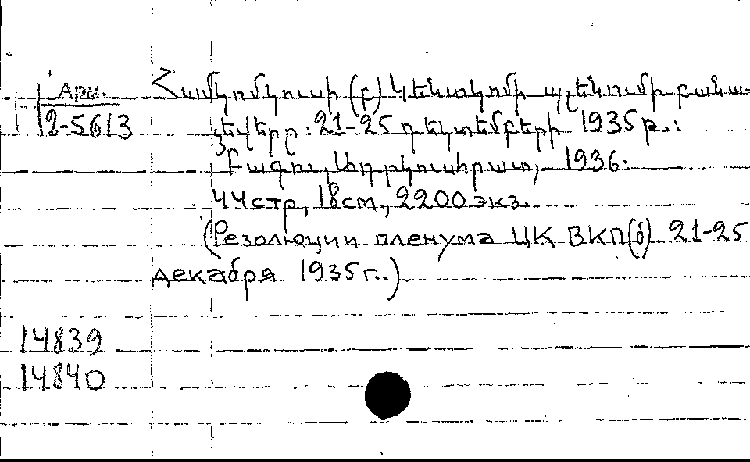 Арм.
2-5613
Համկոմկուսի (բ) Կենտկոմի պլենումի բանա-
ձևերը: 21-25 դեկտեմբերի 1935թ.:
Բագու, 1936.
44стр, 18см., 2200экз.
(Резолюции пленума ЦК ВКП(б) 21-25
декабря 1935г.)
14839
14840